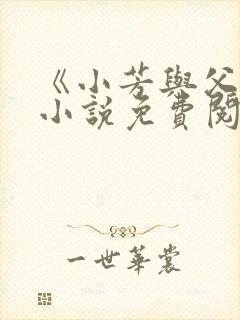 《小芳與父
小說免費閱
一世華裳